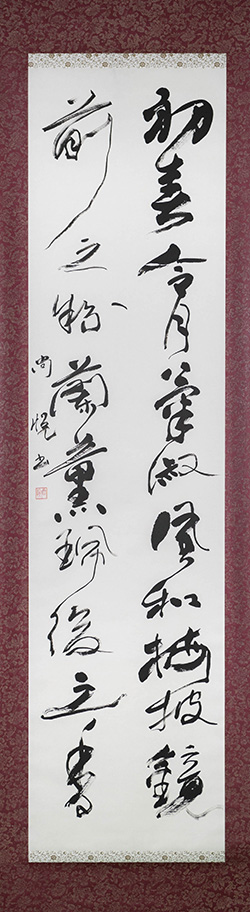 初春令月氣淑風和梅披鏡
前之粉蘭薫珮後之香